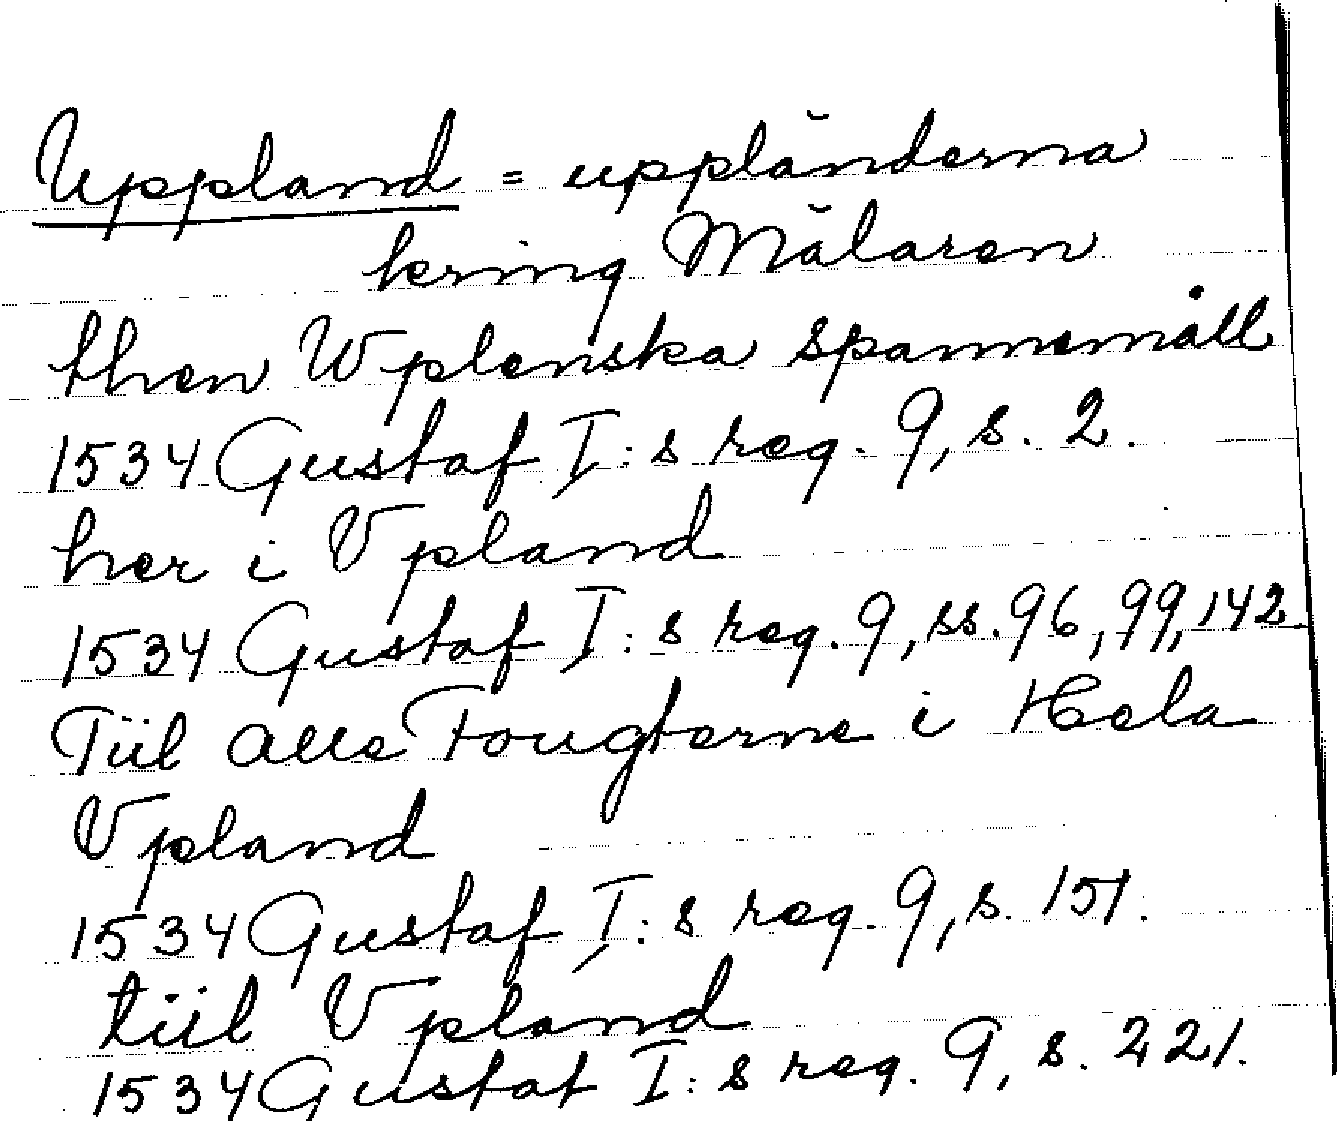 Uppland = uppländerna
kring Mälaren
then Wplenska spannemåll
1534 Gustaf I:s reg. 9, s. 2.
her i Vpland
1534 Gustaf I:s reg. 9, ss. 96, 99, 142.
Tiil alle Fougterne i Hela
Vpland
1534 Gustaf I:s reg. 9, s. 151.
tiil Vpland
1534 Gustaf I:s reg. 9, s. 221.